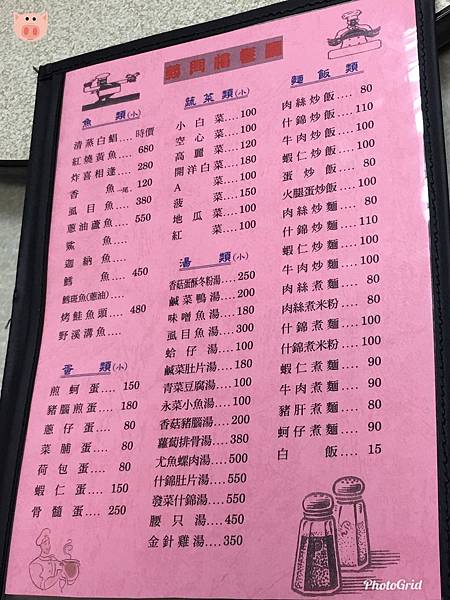 魚 類(小)
清蒸白鯧....時價
紅燒黃魚....680
炸喜相逢....280
香 魚一尾..120
虱目魚....380
蔥油蘆魚....550
鯊 魚....
迦納魚....
鱈 魚....450
鱈斑魚(蔥油)....
烤鮭魚頭....480
野溪溝魚....
蛋 類(小)
煎蚵蛋....150
豬腦煎蛋....180
蔥仔蛋....80
菜脯蛋....80
荷包蛋....80
蝦仁蛋....150
骨髓蛋....250
蔬菜類(小)
小白菜....100
空心菜....100
高麗菜....120
開洋白菜....180
A 菜....100
菠 菜....150
地瓜菜....100
紅 菜....100
湯 類(小)
香菇蛋酥冬粉湯....250
鹹菜鴨湯....200
味噌魚湯....200
虱目魚湯....300
蛤仔湯....100
鹹菜肚片湯....180
青菜豆腐湯....100
永菜小魚湯....100
香菇豬腦湯....200
蘿蔔排骨湯....380
尤魚螺肉湯....550
什錦肚片湯....550
發菜什錦湯....550
腰只湯....450
金針雞湯....350
麵飯類
肉絲炒飯....80
什錦炒飯....110
牛肉炒飯....100
蝦仁炒飯....100
蛋炒飯....80
火腿蛋炒飯....100
肉絲炒麵....80
什錦炒麵....110
蝦仁炒麵....100
牛肉炒麵....100
肉絲煮麵....80
肉絲煮米粉....80
什錦煮麵....100
什錦煮米粉....100
蝦仁煮麵....90
牛肉煮麵....90
豬肝煮麵....80
蚵仔煮麵....90
白 飯....15
PhotoGrid